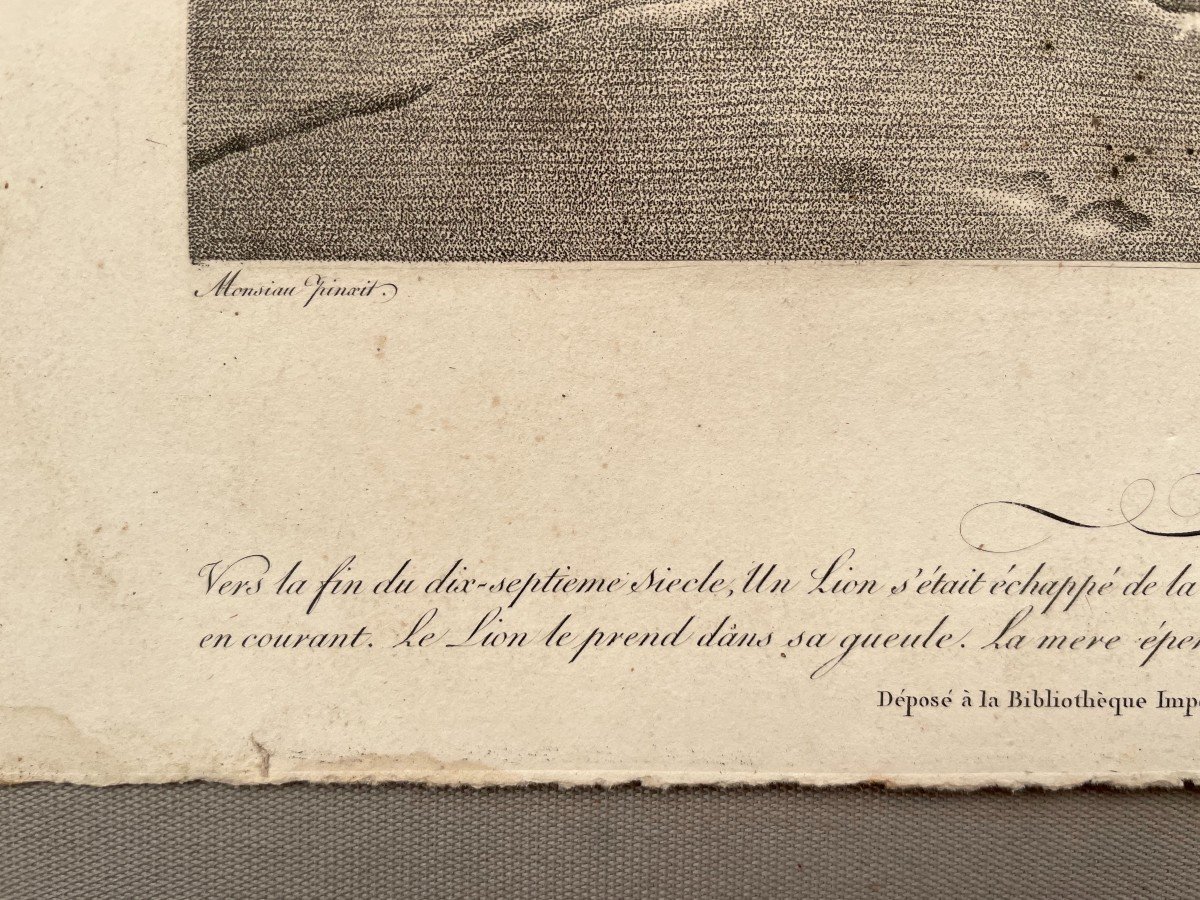 Monsiau Pinxit.
Vers la fin du dix-septieme Siecle, Un Lion s'était échappé de la
en courant. Le Lion le prend dans sa gueule. La mere éper
Déposé à la Bibliothèque Impé